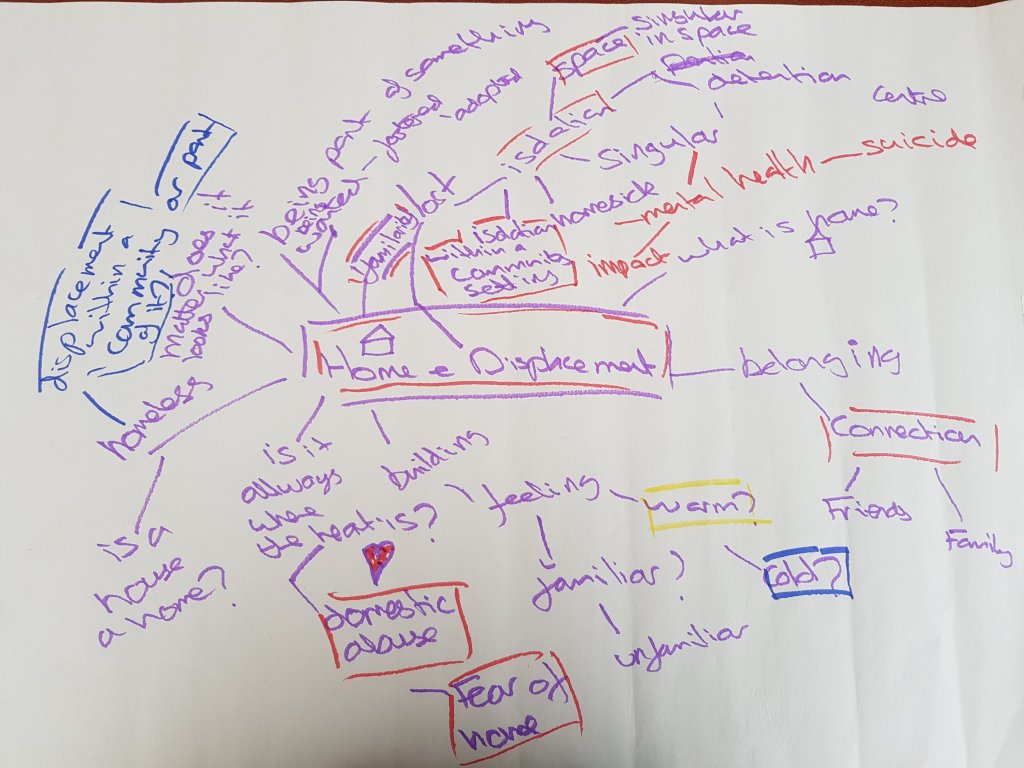 singular
space in space
detention
centre
isolation
singular
being part of something
being
wanted - fostered - adopted
familiarity
lost
homesick
isolation
within a
community
setting
mental health - suicide
impact
what is home?
displacement
within a
community
or part
of it?
does it
matter what it
looks like?
homeless
is a
house
a home?
Home & Displacement
belonging
Connection
Friends
Family
is it
always
where
the heat is?
building
feeling
warm?
cold?
familiar?
unfamiliar
domestic
abuse
Fear of
home